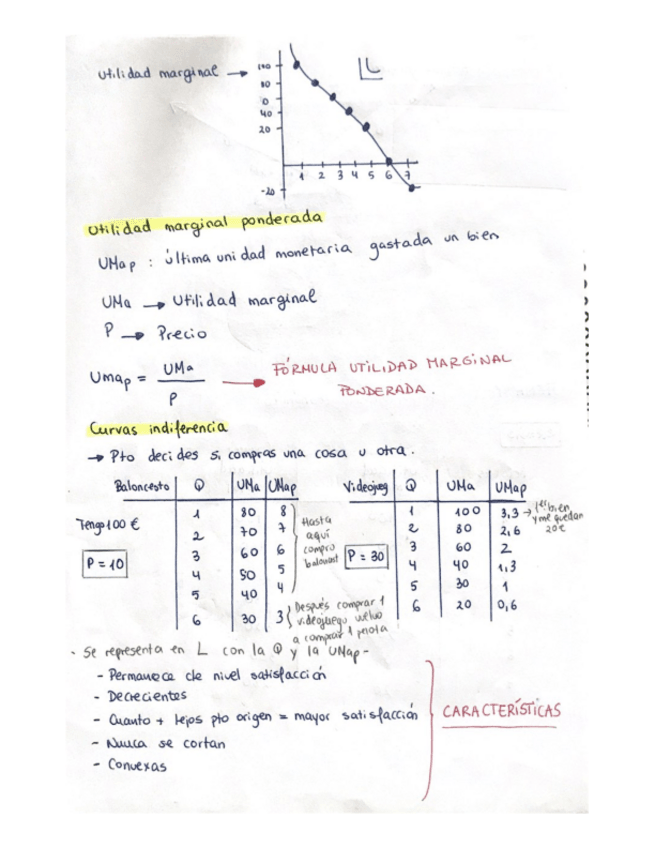 Utilidad marginal →
100
80
0
40
20
-20
1 2 3 4 5 6 7
Utilidad marginal ponderada
UMap : última unidad monetaria gastada un bien
UMa → Utilidad marginal
P → Precio
Umap = UMa / P → FÓRMULA UTILIDAD MARGINAL PONDERADA.
Curvas indiferencia
→ Pto decides si compras una cosa u otra.
Baloncesto Q UMa UMap
Tengo 100 €
P = 10
1 80 8
2 70 7
3 60 6
4 50 5
5 40 4
6 30 3
Hasta
aquí
compro
balonest
Después comprar 1
videojuego vuelvo
a comprar 1 pelota
Videojueg Q UMa UMap
P = 30
1 100 3,3 → 1er bien
y me quedan
20€
2 80 2,6
3 60 2
4 40 1,3
5 30 1
6 20 0,6
· Se representa en L con la Q y la UMap -
- Permanece cte nivel satisfacción
- Decrecientes
- Cuanto + lejos pto origen = mayor satisfacción
- Nunca se cortan
- Convexas
CARACTERÍSTICAS